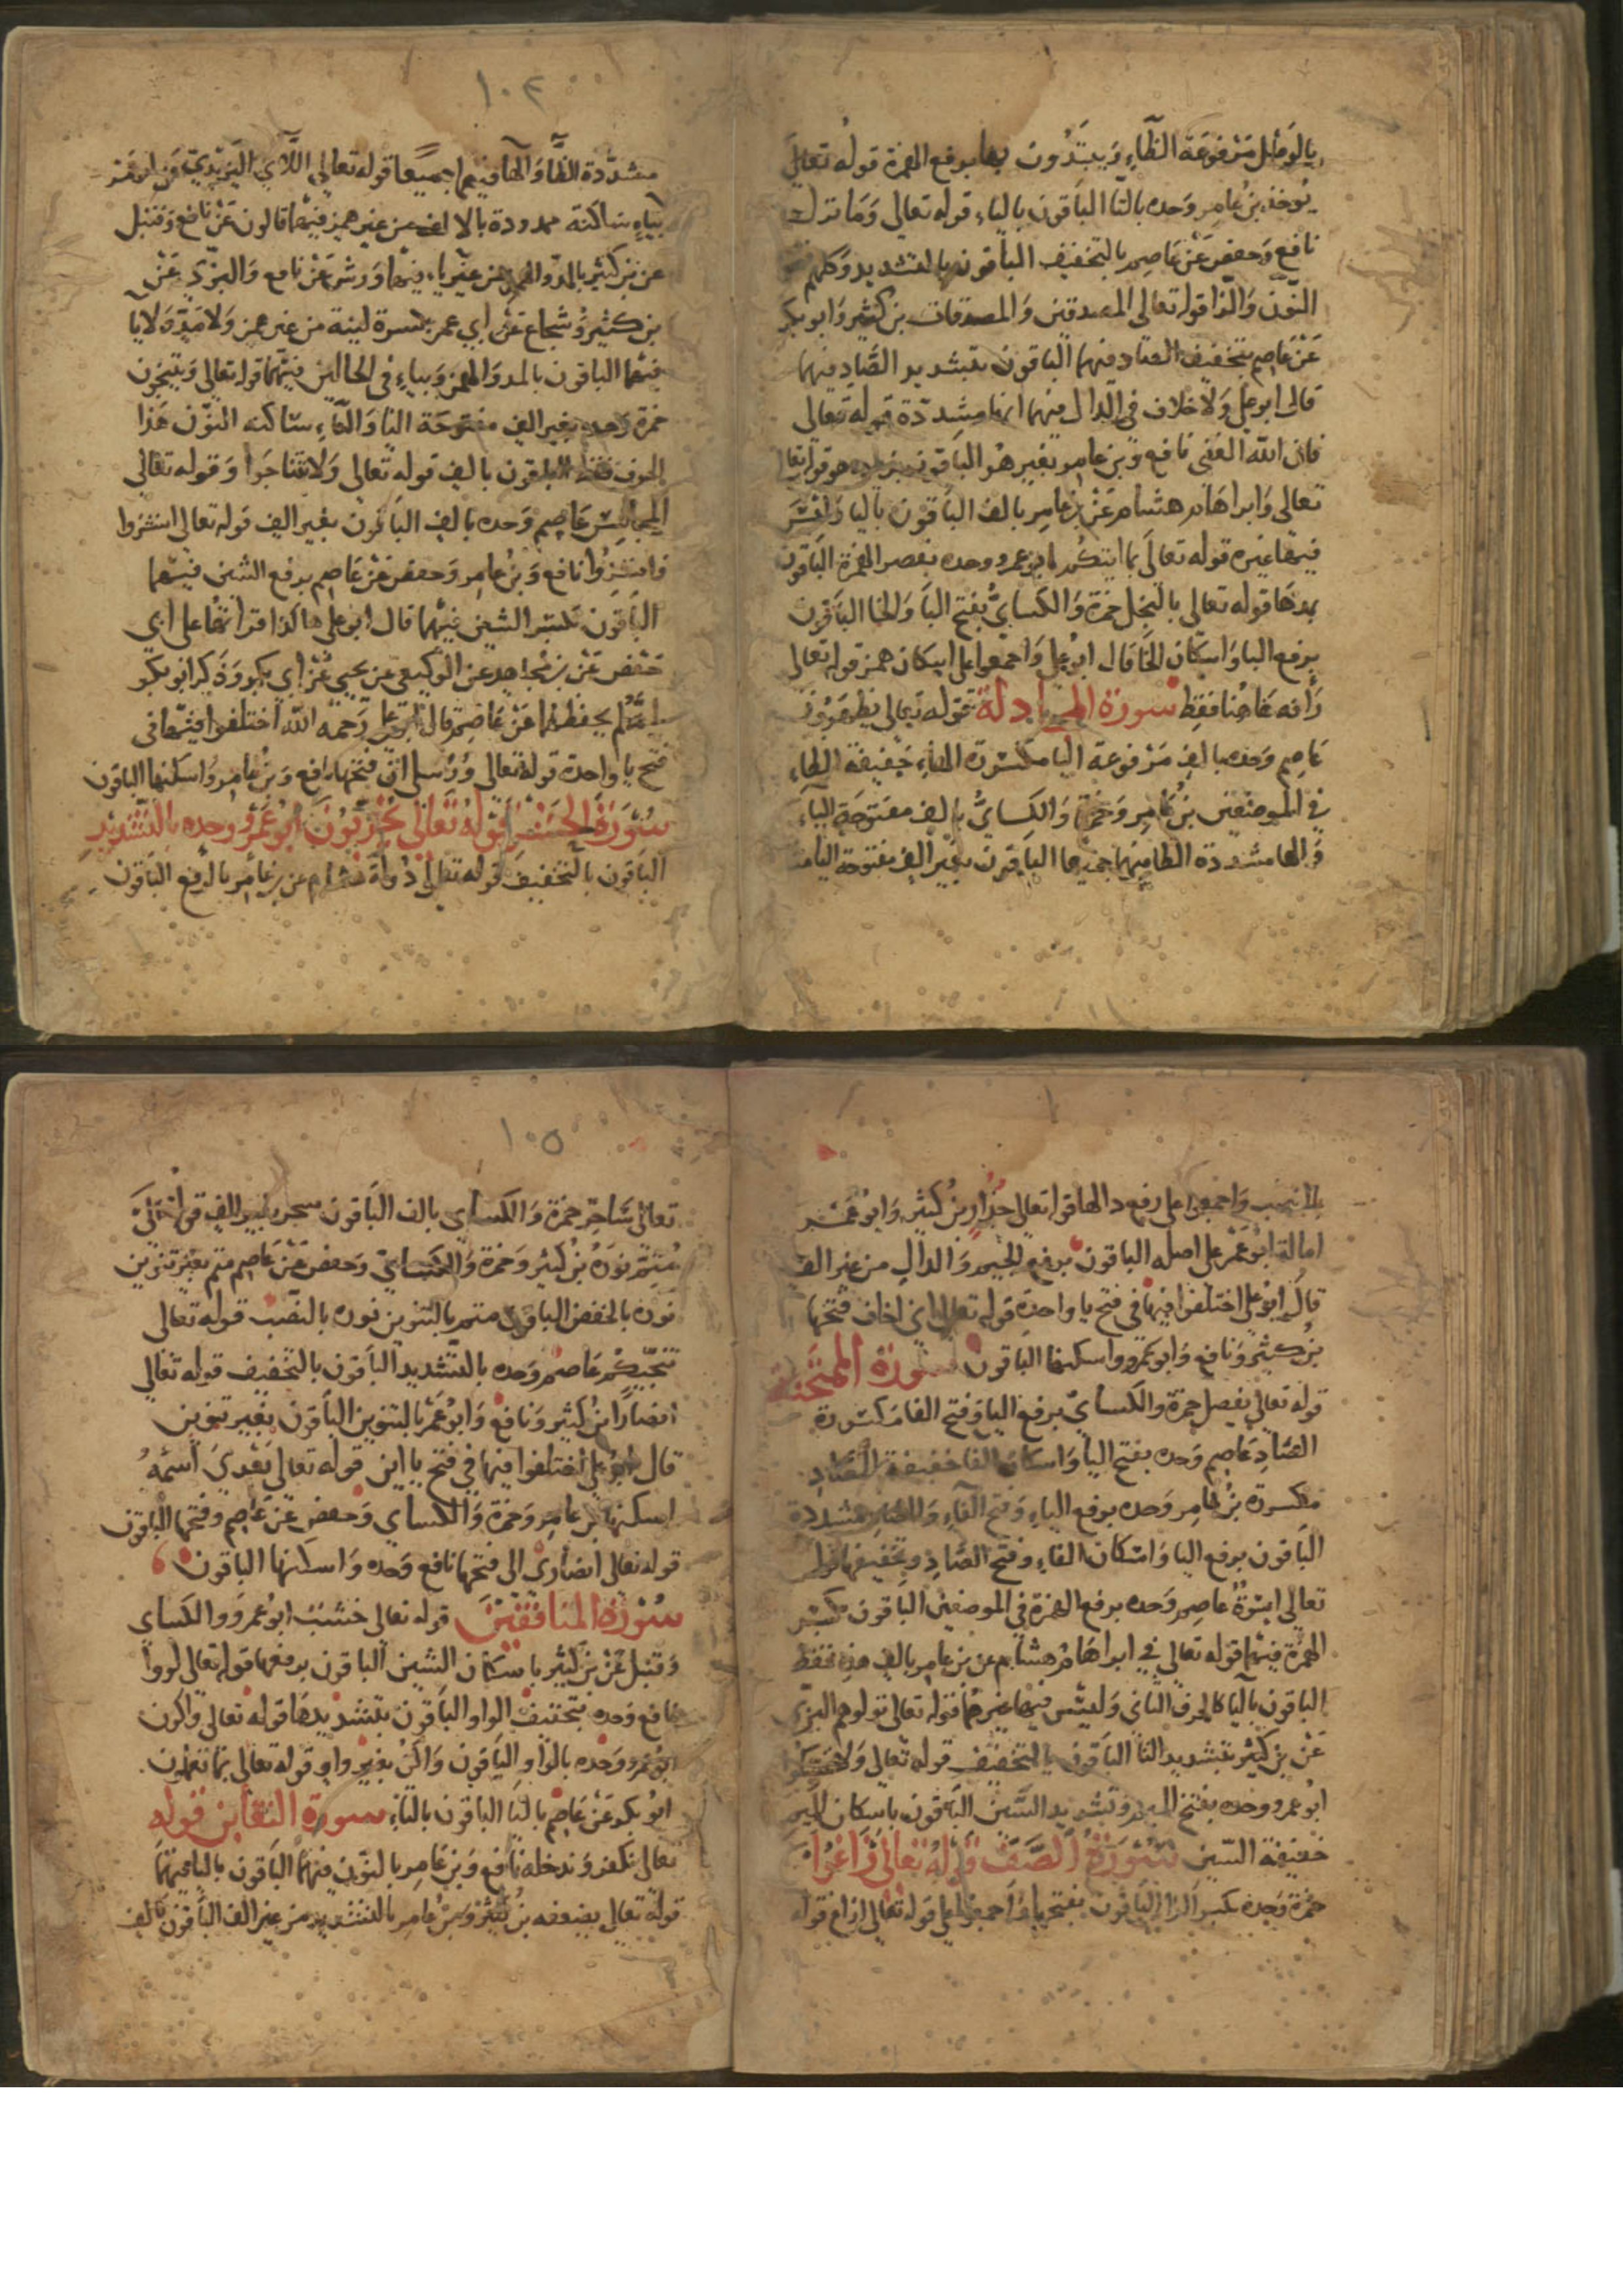 بالوصل مرفوعة الظاء ويبتدون بها برفع الهمزة قوله تعالى
يوخذ بن عامر وحده بالتا الباقون بالياء قوله تعالى وما نزل
نافع وحفص عن عاصم بالتخفيف الباقون بالتشديد وكلهم فتح
النون والزا قوله تعالى المصدقين والمصدقات بن كثير وابو بكر
عن عاصم بتخفيف الصاد فيهما الباقون بتشديد الصاد فيهما
قال ابو علي ولا خلاف في الدال فيهما انها مشددة قوله تعالى
فان الله الغني نافع وبن عامر بغير هو الباقون بزيادة هو قوله تعالى
تعالى وابراهام هشام عن بن عامر بالف الباقون باليا وليس
فيها غيره قوله تعالى بما اتيكم ابو عمرو وحده بقصر الهمزة الباقون
بمدها قوله تعالى بالبخل حمزة والكسائي بفتح البا والخا الباقون
برفع البا واسكان الخا قال ابو علي واجمعوا على اسكان همز قوله تعالى
رافه هاهنا فقط سورة المجادلة قوله تعالى يظهرون
عاصم وحده بالف مرفوعة اليا مكسورة الهاء خفيفة الظاء
في الموضعين بن عامر وحمزة والكسائي بالف مفتوحة الياء
والها مشددة الظا فيهما جميعا الباقون بغير الف مفتوحة اليا
١٠٤
مشددة الظا والها فيهما جميعا قوله تعالى اللاي اليزيدي عن ابو عمر
بياء ساكنة ممدودة بالالف من غير همز فيها قالون عن نافع وقنبل
عن بن كثير بالمد والهمز من غير ياء فيها وورش عن نافع والبزي عن
بن كثير وشجاع عن ابي عمر بكسرة لينة من غير همز ولا مد ولا يا
فيها الباقون بالمد والهمز وبياء في الحالين فيهما قوله تعالى ويتنجون
حمزة وحده بغير الف مفتوحة التا والتاء ساكنه النون هذا
الحرف فقط الباقون بالف قوله تعالى ولا تتناجوا وقوله تعالى
المجالس عاصم وحده بالف الباقون بغير الف قوله تعالى انشزوا
فانشزوا نافع وبن عامر وحفص عن عاصم برفع الشين فيهما
الباقون بكسر الشين فيهما قال ابو علي هاكذا قراتها على ابي
حفص عن بن مجاهد عن الوكيعي عن يحيى عن ابي بكر وذكر ابو بكر
انه لم يحفظها عن عاصم قال ابو علي رحمه الله اختلفوا فيها في
فتح يا واحدة قوله تعالى ورسلي ان فتحها نافع وبن عامر واسكنها الباقون
سورة الحشر قوله تعالى يخربون ابو عمرو وحده بالتشديد
الباقون بالتخفيف قوله تعالى دولة هشام عن بن عامر بالرفع الباقون
بالنصب واجمعوا على رفع دالها قوله تعالى جدار بن كثير وابو عمر
امالة ابو عمر على اصله الباقون برفع الجيم والدال من غير الف
قال ابو علي اختلفوا فيها في فتح يا واحدة قوله تعالى اني اخاف فتحها
بن كثير ونافع وابو عمرو واسكنها الباقون سورة الممتحنة
قوله تعالى يفصل حمزة والكسائي برفع اليا وفتح الفا مكسورة
الصاد عاصم وحده بفتح اليا واسكان الفا خفيفة الصاد
مكسورة بن عامر وحده برفع الياء وفتح الفاء والصاد مشددة
الباقون برفع اليا واسكان الفاء وفتح الصاد وتخفيفها قوله
تعالى اسوة عاصم وحده برفع الهمزة في الموضعين الباقون بكسر
الهمزة فيهما قوله تعالى في ابراهام هشام عن بن عامر بالف هذه فقط
الباقون باليا كالحرف الثاني وليس فيها غيرهما قوله تعالى تولوهم البزي
عن بن كثير بتشديد التا الباقون بالتخفيف قوله تعالى ولا تمسكوا
ابو عمرو وحده بفتح الميم وتشديد السين الباقون باسكان الميم
خفيفة السين سورة الصف قوله تعالى زاغوا
حمزة وحده بكسر الزا الباقون بفتحها واجمعوا على قوله تعالى ازاغ قوله
١٠٥
تعالى ساحر حمزة والكساي بالف الباقون سحر بغير الف قوله تعالى
متم نوره بن كثير وحمزة والكسائي وحفص عن عاصم متم بغير تنوين
نوره بالخفض الباقون متم بالتنوين نوره بالنصب قوله تعالى
تنجيكم عاصم وحده بالتشديد الباقون بالتخفيف قوله تعالى
انصارا بن كثير ونافع وابو عمر بالتنوين الباقون بغير تنوين
قال ابو علي اختلفوا فيها في فتح يا اين قوله تعالى بعدي اسمه
اسكنها بن عامر وحمزة والكساي وحفص عن عاصم وفتحها الباقون
قوله تعالى انصاري الى فتحها نافع وحده واسكنها الباقون
سورة المنافقين قوله تعالى خشب ابو عمرو والكساي
وقنبل عن بن كثير باسكان الشين الباقون برفعها قوله تعالى لووا
نافع وحده بتخفيف الواو الباقون بتشديدها قوله تعالى واكون
ابو عمرو وحده بالواو الباقون واكن بغير واو قوله تعالى بما تعملون
ابو بكر عن عاصم باليا الباقون بالتاء سورة التغابن قوله
تعالى نكفر وندخله نافع وبن عامر بالنون فيهما الباقون باليا فيهما
قوله تعالى يضعفه بن كثير وبن عامر بالتشديد من غير الف الباقون بالف